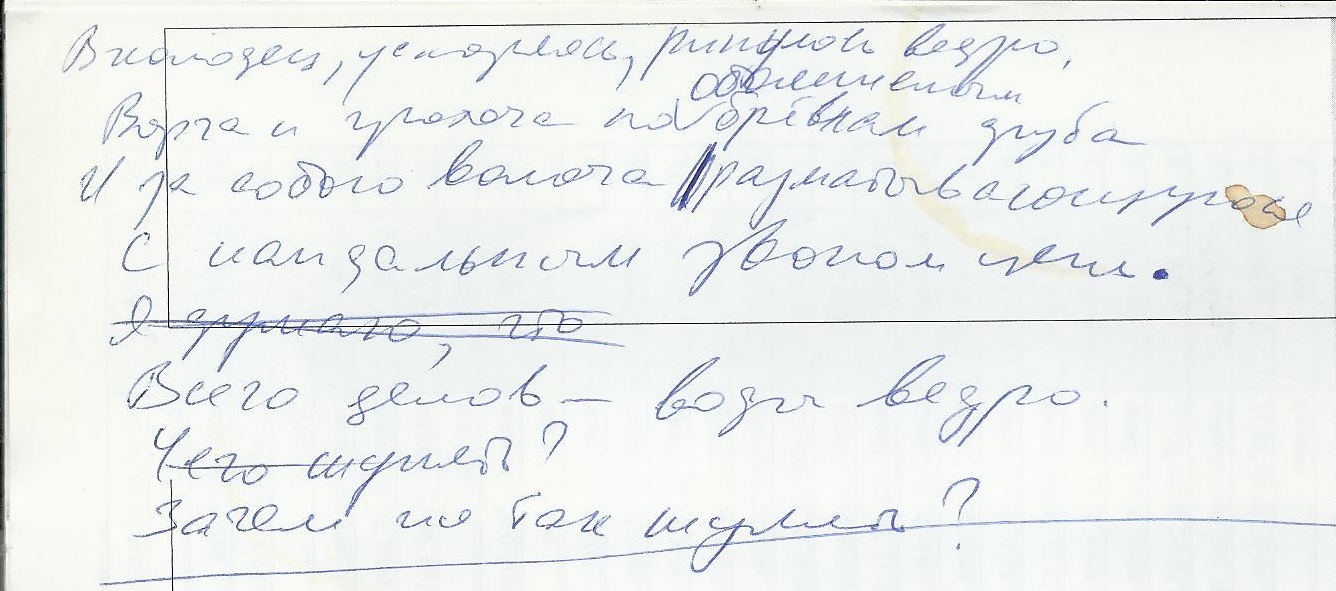 В колодец, ускоряясь, ринулось ведро,
обомшелым
Ворча и грохоча по брёвнам сруба
И за собою волоча разматывающуюся
С кандальным звоном цепь.
Я думаю, что
Всего делов — воды ведро.
Чего шуметь?
Зачем же так шуметь?